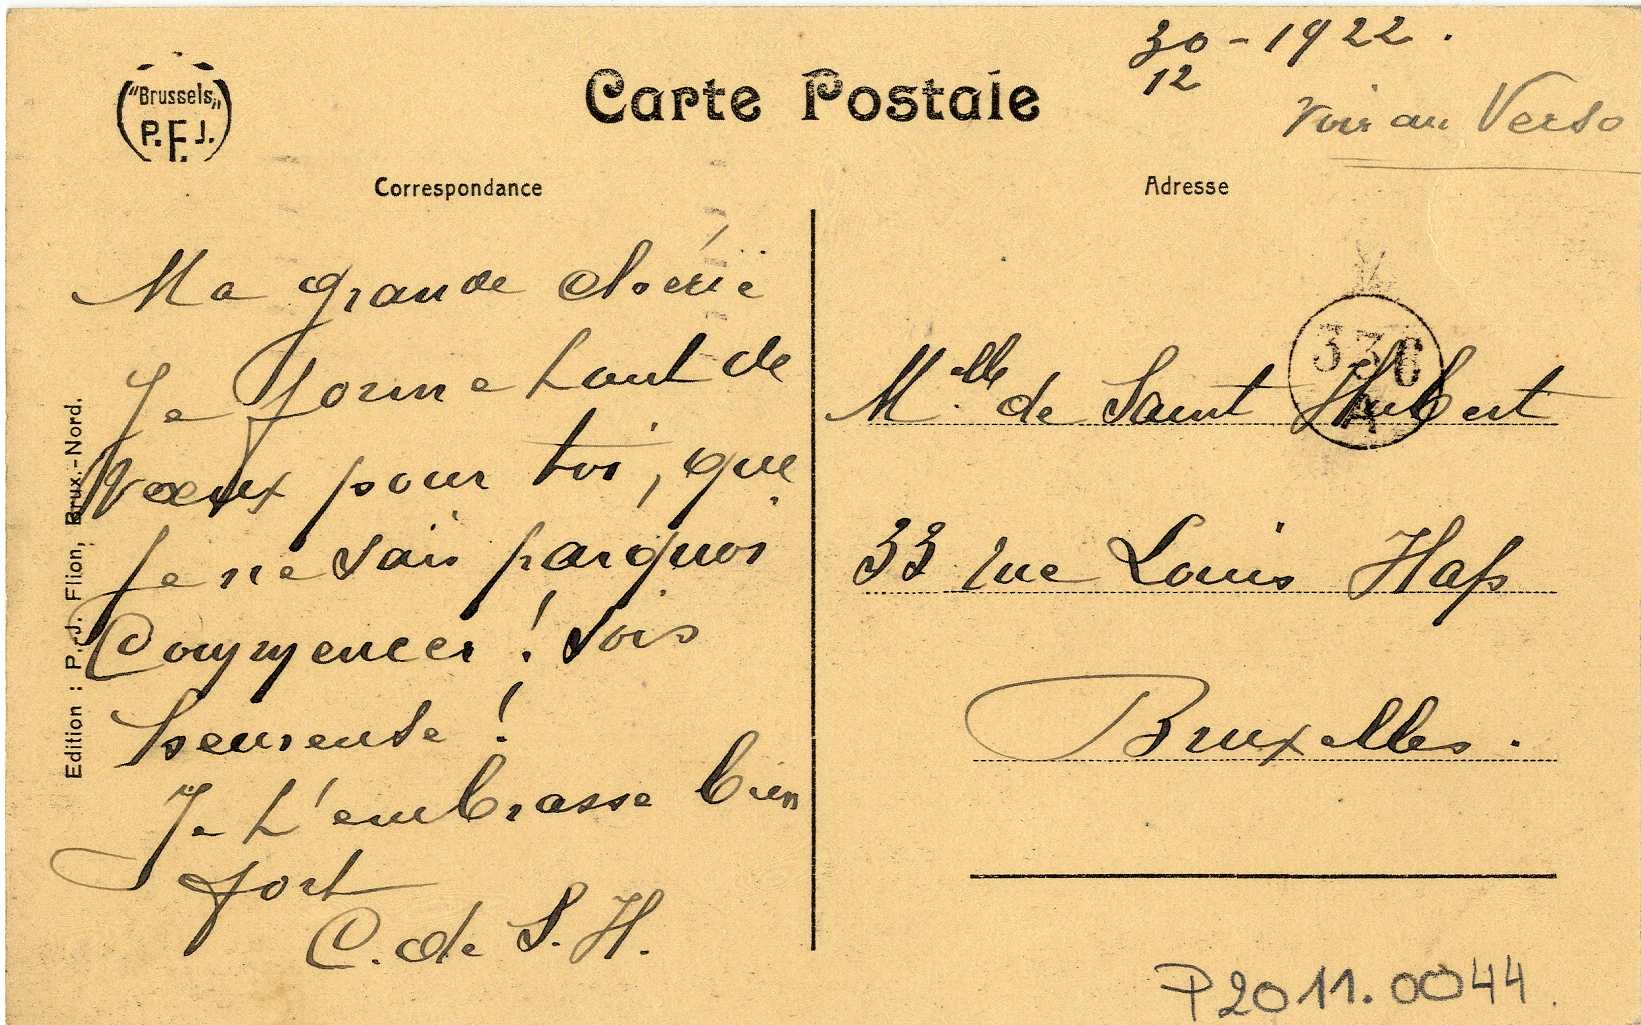 30 - 1922.
12
"Brussels"
P.F.J.
Carte Postale
Voir au Verso
Correspondance
Adresse
Ma grande chérie
Je forme tant de
voeux pour toi, que
je ne sais par quoi
Commencer ! Sois
heureuse !
Je t'embrasse bien
fort
C. de S. H.
Edition : P.-J. Flion, Brux.-Nord.
336
A
Melle de Saint Hubert
33 rue Louis Hap
Bruxelles.
P2011.0044.